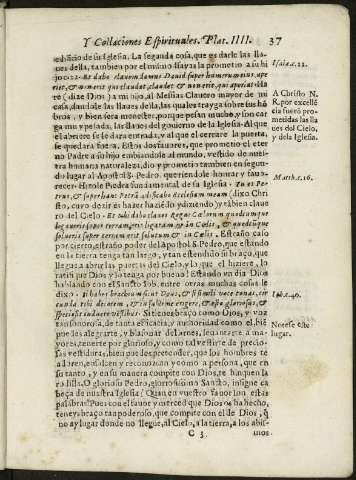 Y Collaciones Espirituales. Plat. IIII. 37
edificio de su Iglesia. La segunda cosa, que es darle las lla-
ues della, tambien por el mismo Isayas la prometio a su hi
jo c. 22. Et dabo clauem domus Dauid super humerum eius, ape
riet, & non erit qui claudat; claudet & non erit, qui aperiat:
re (dize Dios) a mi hijo, al Messias Clauero mayor de mi
casa, dandole las llaues della, las quales trayga sobre sus hõ
bros, y bien sera menester, porque pesan mucho, y son car
ga muy pesada, las llaues del gouierno de la Iglesia. Al que
el abriere se le dara entrada, y al que el cerrare la puerta,
se quedara fuera. Estos dos fauores, que prometio el eter
no Padre a su hijo embiandole al mundo, vestido de nues
tra humana naturaleza, dio y prometio tambien en segun
do lugar al Apostol S. Pedro, queriendole honrar y fauo-
recer. Hizole Piedra fundamental de su Iglesia. Tu es Pe-
trus, & super hanc Petrã ædificabo Ecclesiam meam (dixo Chri
sto,
ues del Cielo. Et tibi dabo claues Regni Cælorum quodcumque
ligaueris super terram erit ligatum & in Cælis, & quodcũque
solueris super terram erit solutum & in Cælis. Estraño caso
por cierto, estraño poder del Apostol S. Pedro, que estando
en la tierra tenga tan largo, y tan estendido su braço, que
llegue a abrir las puertas del Cielo, y lo que el hiziere, lo
ratifique Dios y lo tenga por bueno! Estando vn dia Dios
hablando con el Santo Iob, entre otras muchas cosas le
dixo. Si habes brachium sicut Deus, & si simili voce tonas, cir
cunda tibi decorem, & in sublime erigere, & esto gloriosus, &
speciosis induere vestibus. Si tienes braço como Dios, y voz
tan sonorosa, de tanta eficacia, y autoridad como el, biẽ
puedes
yores, tenerte por glorioso, y como tal vestirte de precio-
sas vestiduras, bien puedes pretender, que los hombres te
adoren, ensalcen y reconozcan como a persona, que en
su tanto, y en su manera compite con Dios, te hinquen la
rodilla. O glorioso Pedro, gloriosissimo Santo, insigne ca
beça de nuestra Iglesia! Quan en vuestro fauor son estas
palabras! Pues con el fauor y merced que Dios os ha hecho,
teneys braço tan poderoso, que compite con el de Dios, q̃
no ay lugar donde no llegue, al Cielo, a la tierra, a los abis-
C 5 mos.
Isaia. c. 22.
A Christo N.
R. por excelẽ
cia fuerõ pro
metidas las lla
ues del Cielo,
y de la Iglesia.
Matth. c. 16.
Iob. c. 40.
Notese este
lugar.